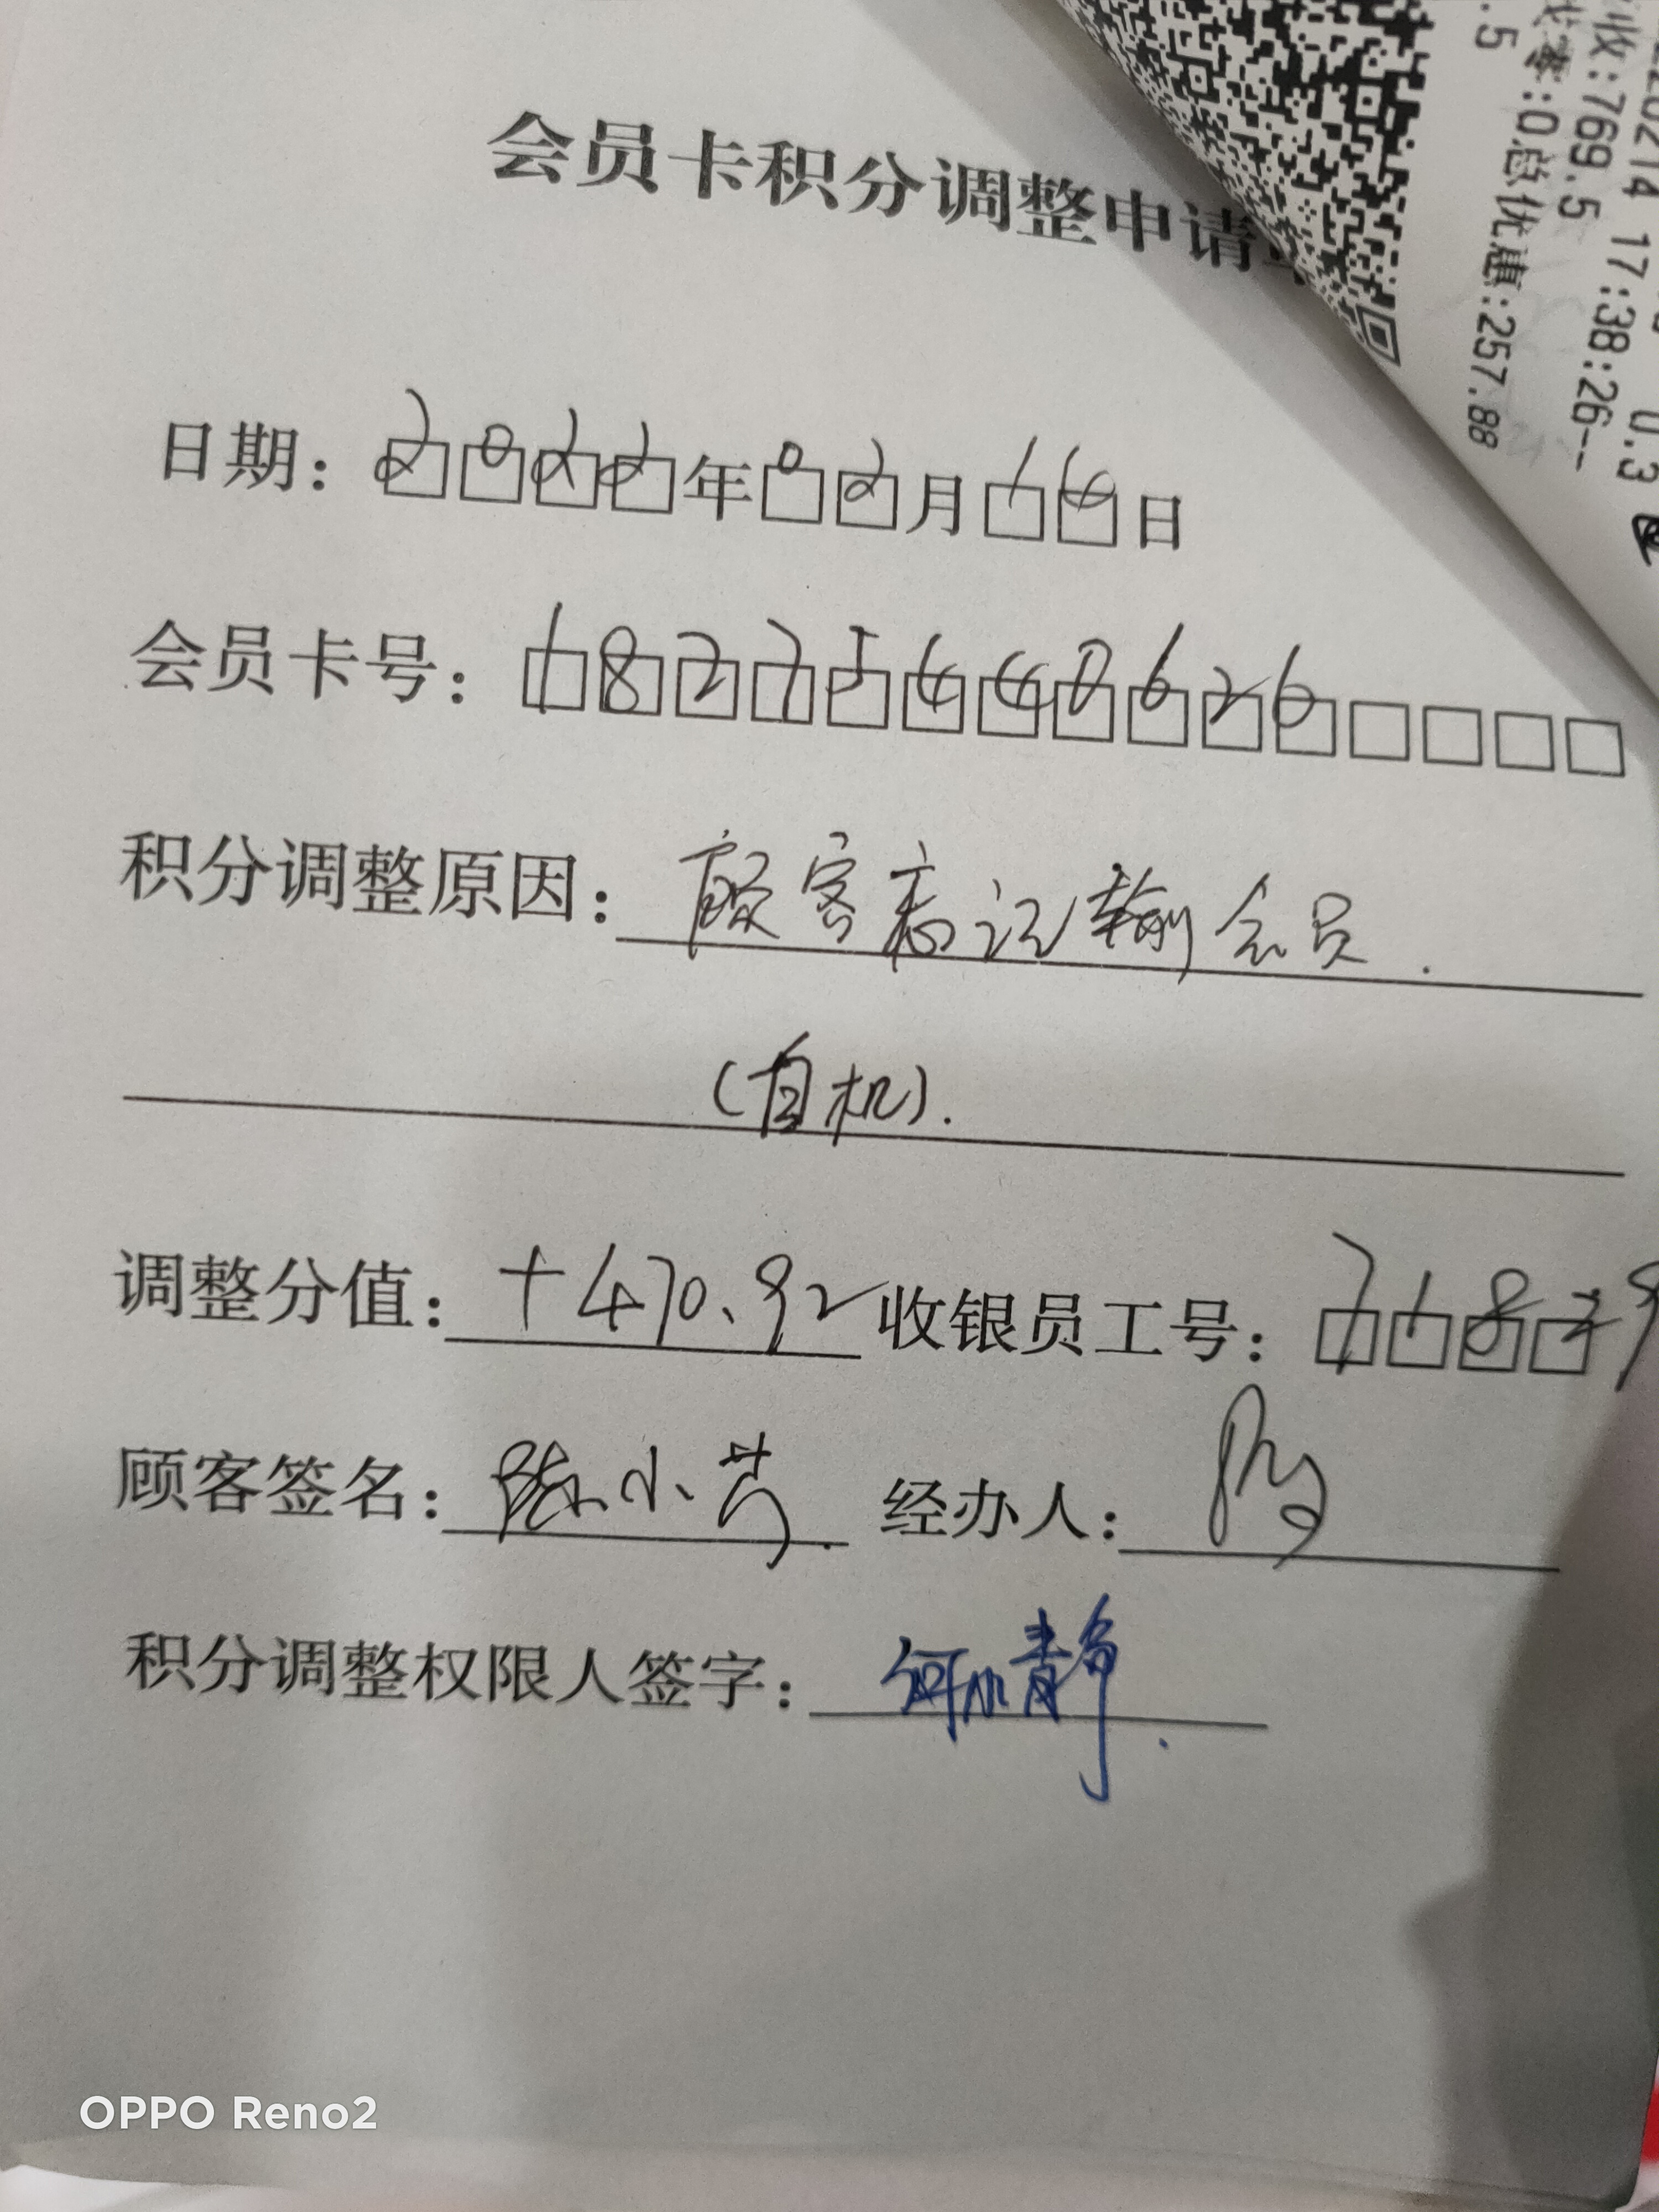 会员卡积分调整申请
日期：2022年02月14日
会员卡号：18277544062 6
积分调整原因：顾客忘记输会员.
(自机).
调整分值：+470.92 收银员工号：71829
顾客签名：陈小芳. 经办人：
积分调整权限人签字：何小静.
220214 17:38:26--
收:769.5
找零:0总优惠:257.88
.5
0.3
OPPO Reno2